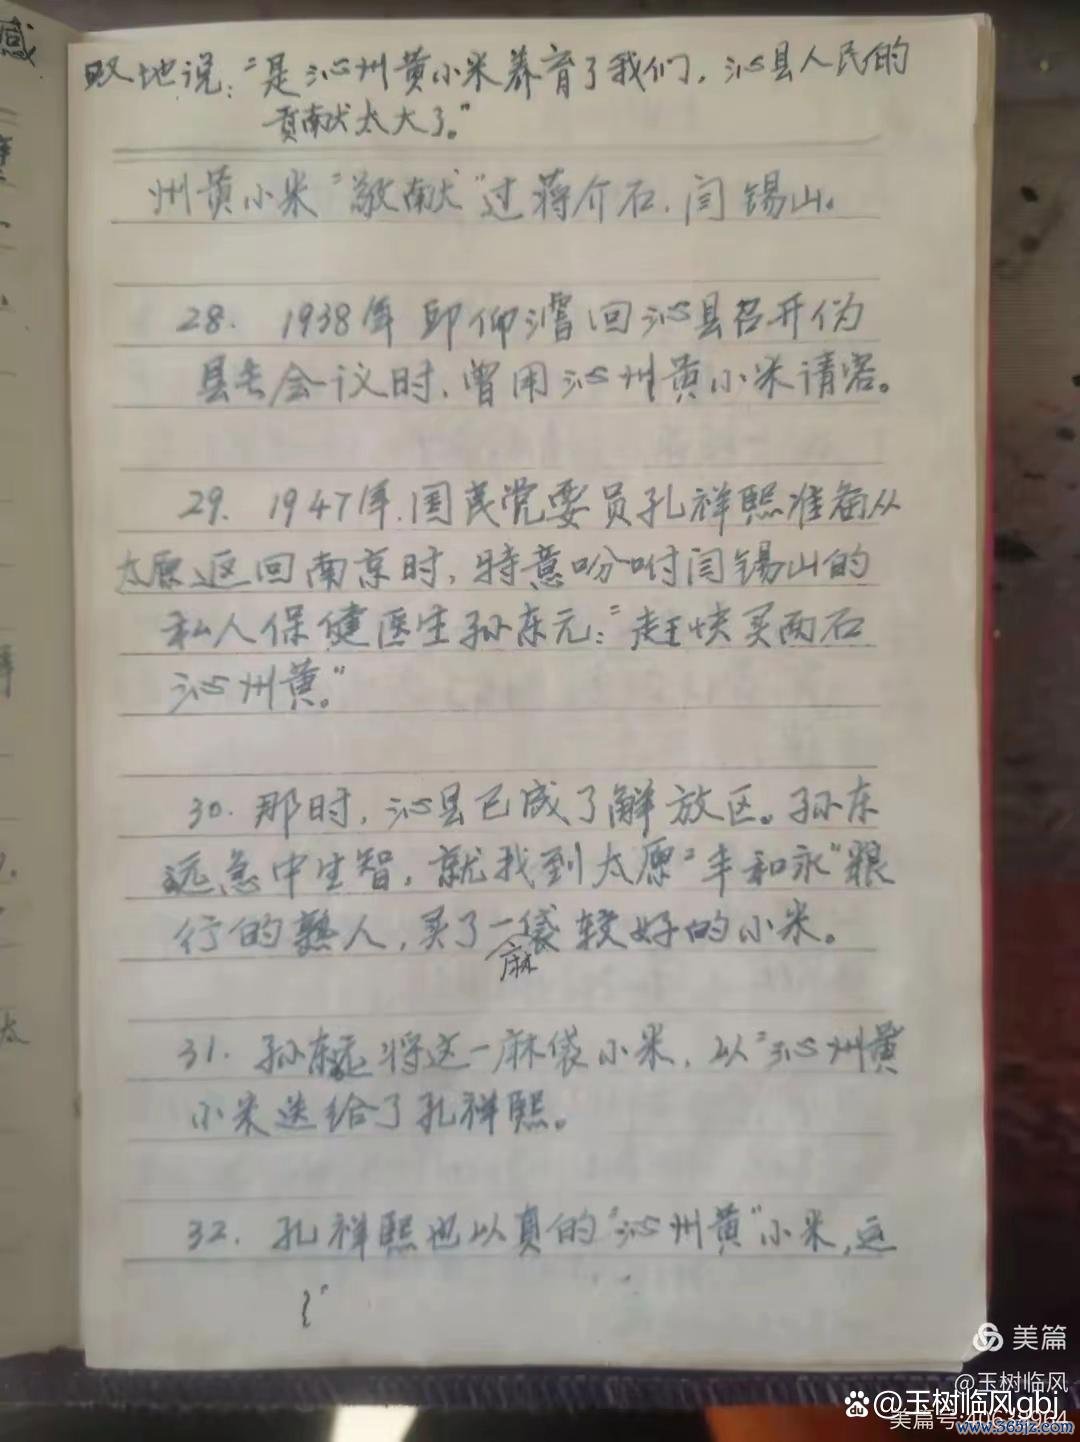 感
叹地说：“是沁州黄小米养育了我们，沁县人民的
贡献太大了。”
州黄小米“敬献”过蒋介石、闫锡山。
28. 1938年邱仰濬回沁县召开伪
县长会议时，曾用沁州黄小米请客。
29. 1947年，国民党要员孔祥熙准备从
太原返回南京时，特意吩咐闫锡山的
私人保健医生孙东元：“赶快买两石
沁州黄。”
30. 那时，沁县已成了解放区。孙东
远急中生智，就找到太原“丰和永”粮
行的熟人，买了一袋较好的小米。
麻
31. 孙东远将这一麻袋小米，以“沁州黄
小米送给了孔祥熙。
32. 孔祥熙也以真的“沁州黄”小米，运
美篇
@玉树临风
@玉树临风gbj
美篇号:
www.365jz.com